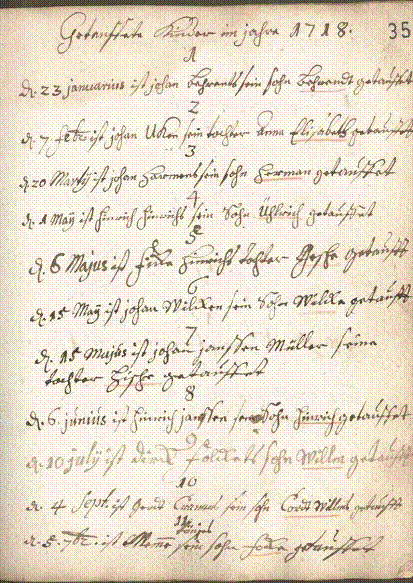 Getauffete Kinder im jahre 1718. 35
1
d. 23 januarius ist johan Behrents sein sohn Behrendt getauffet
2
d. 7 febr. ist johan Uken sein tochter Anna Elisabeth getauffet
3
d. 20 Marty ist johan Harmens sein sohn Herman getauffet
4
d. 1 May ist hinrich hinrichs sein Sohn Uhlrich getauffet
5
d. 6 Majus ist hinrichs tochter Gesche getaufft
6
d. 15 May ist johan Wilcken sein Sohn Wilcke getaufft
7
d. 15 Majus ist johan janssen Müller seine
tochter getauffet
8
d. 6. junius ist hinrich janssen sein Sohn hinrich getauffet
9
d. 10 july ist dirck sohn Willm getauffet
10
d. 4 Sept. ist Gerdt sein sohn Cordt Willms getaufft
11
d. 5. 7br. ist sein sohn getauffet